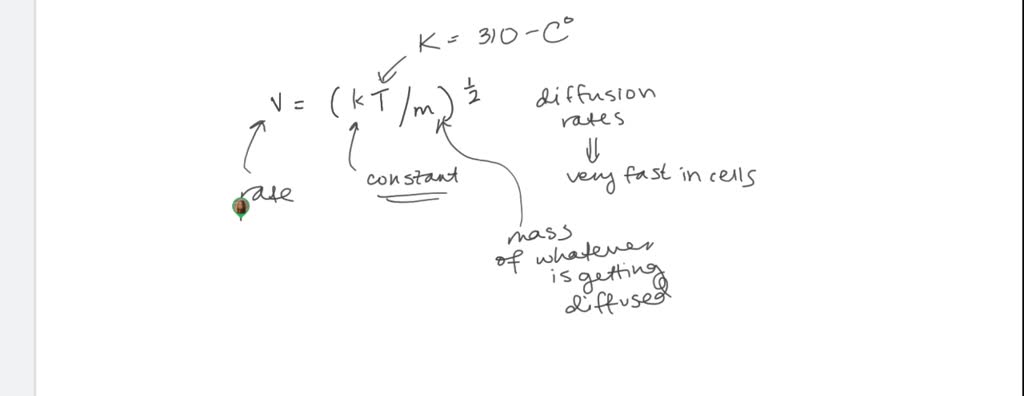 K = 310 - C°
V = (kT/m)^½
diffusion
rates
⇓
very fast in cells
rate
constant
mass
of whatever
is getting
diffused